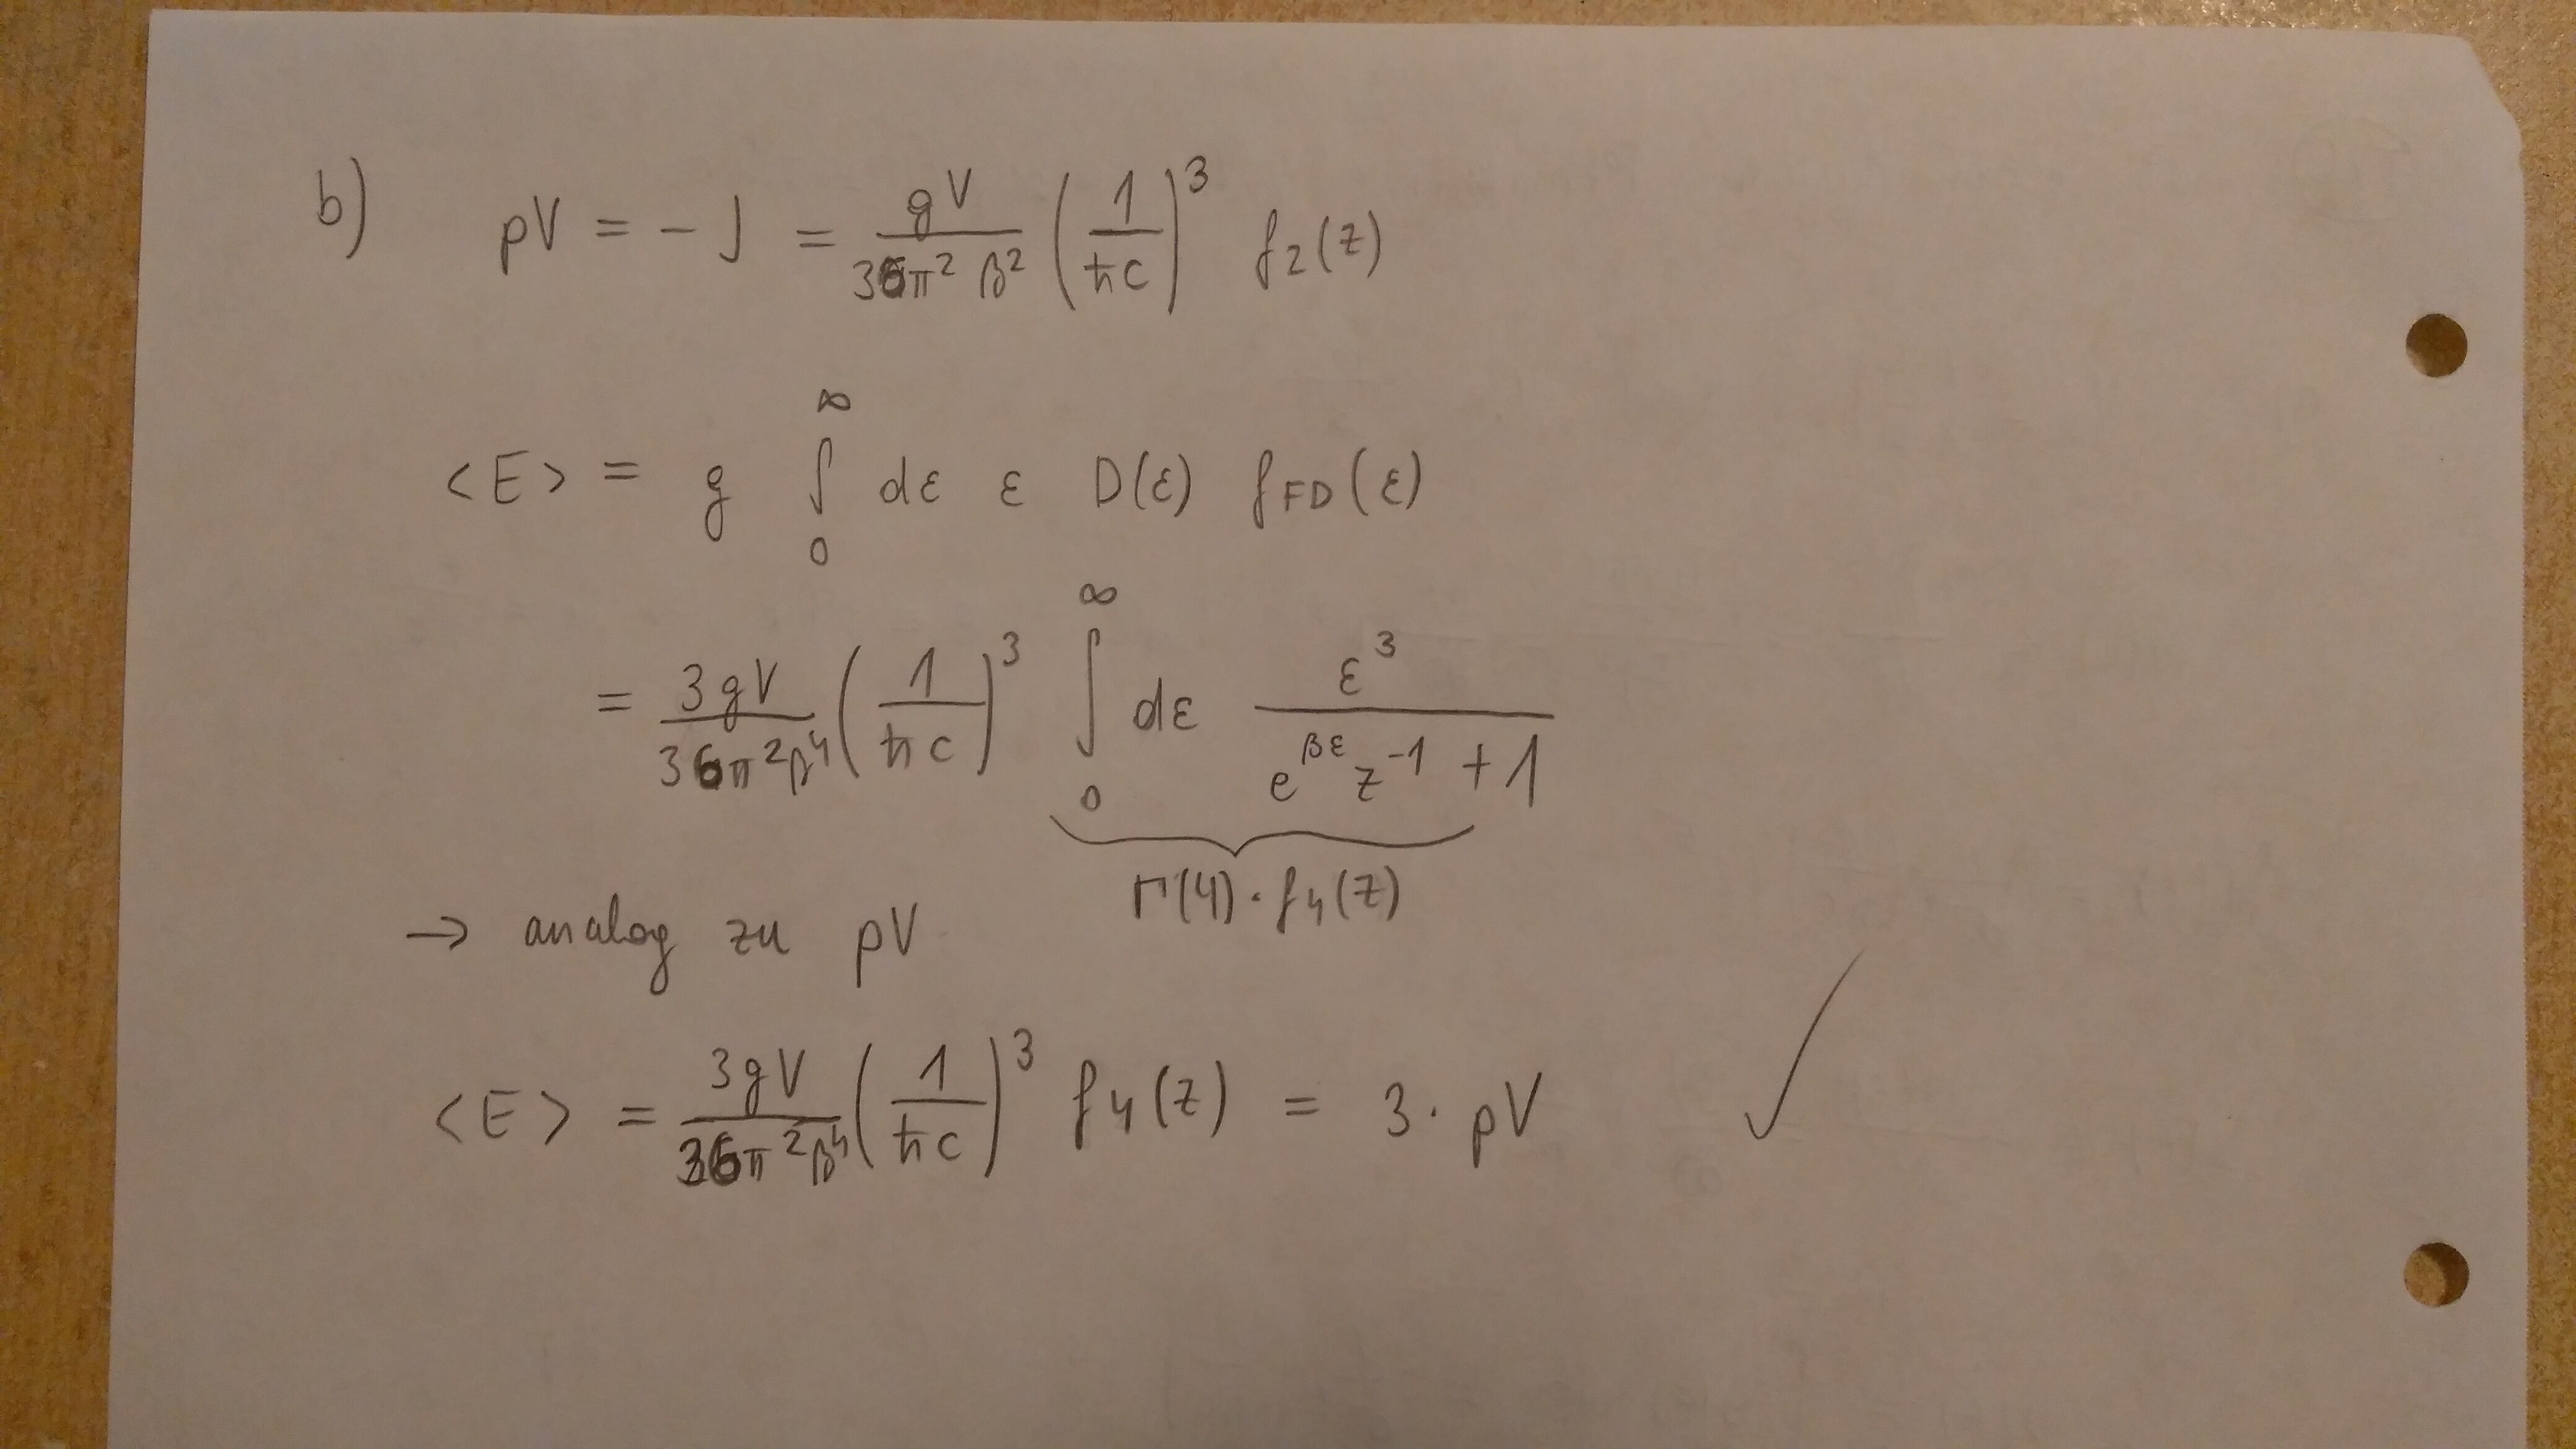 b) pV = - J = gV / 36π² β² (1 / ħc)³ f₂(z)
<E> = g ∫₀^∞ dε ε D(ε) f_FD(ε)
= 3gV / 36π²β⁴ (1 / ħc)³ ∫₀^∞ dε ε³ / (e^βε z⁻¹ + 1)
Γ(4) · f₄(z)
→ analog zu pV
<E> = 3gV / 36π²β⁴ (1 / ħc)³ f₄(z) = 3 · pV ✓